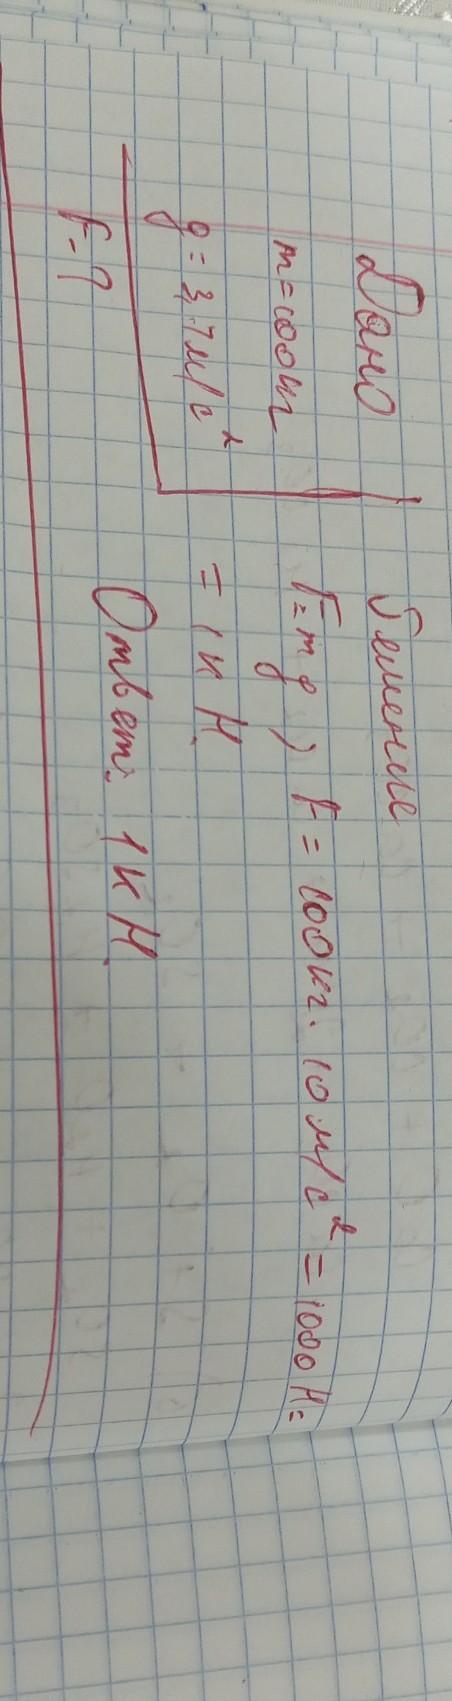 Дано
m=100кг
g= 3,7м/с²
F-?
Решение
F=mg, F= 100кг. 10 м/с² = 1000 Н=
= 1 к Н.
Ответ: 1 к Н.